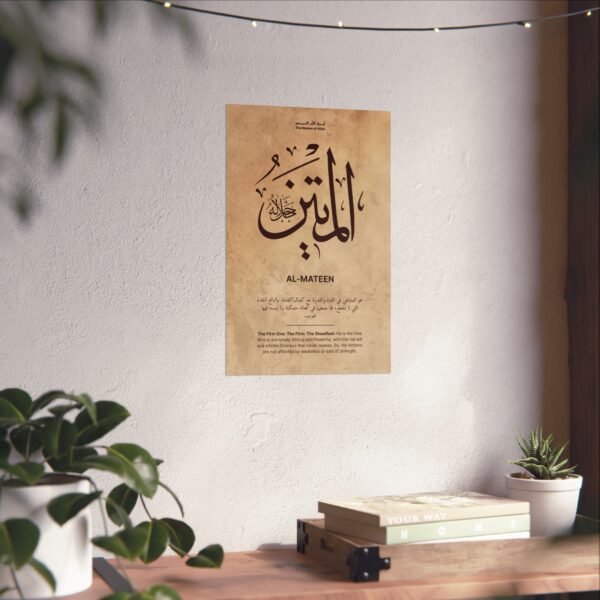 The Names of Allah
المتين
جل جلاله
AL-MATEEN
هو المتناهي في القوة والقدرة مع كمال
The Firm One, The Firm, The Steadfast: He is the One
Who is extremely Strong and Powerful, with the full aid
and infinite firmness that never ceases. So, His Actions
are not affected by weakness or loss of strength.
YOUR WAY
HOME